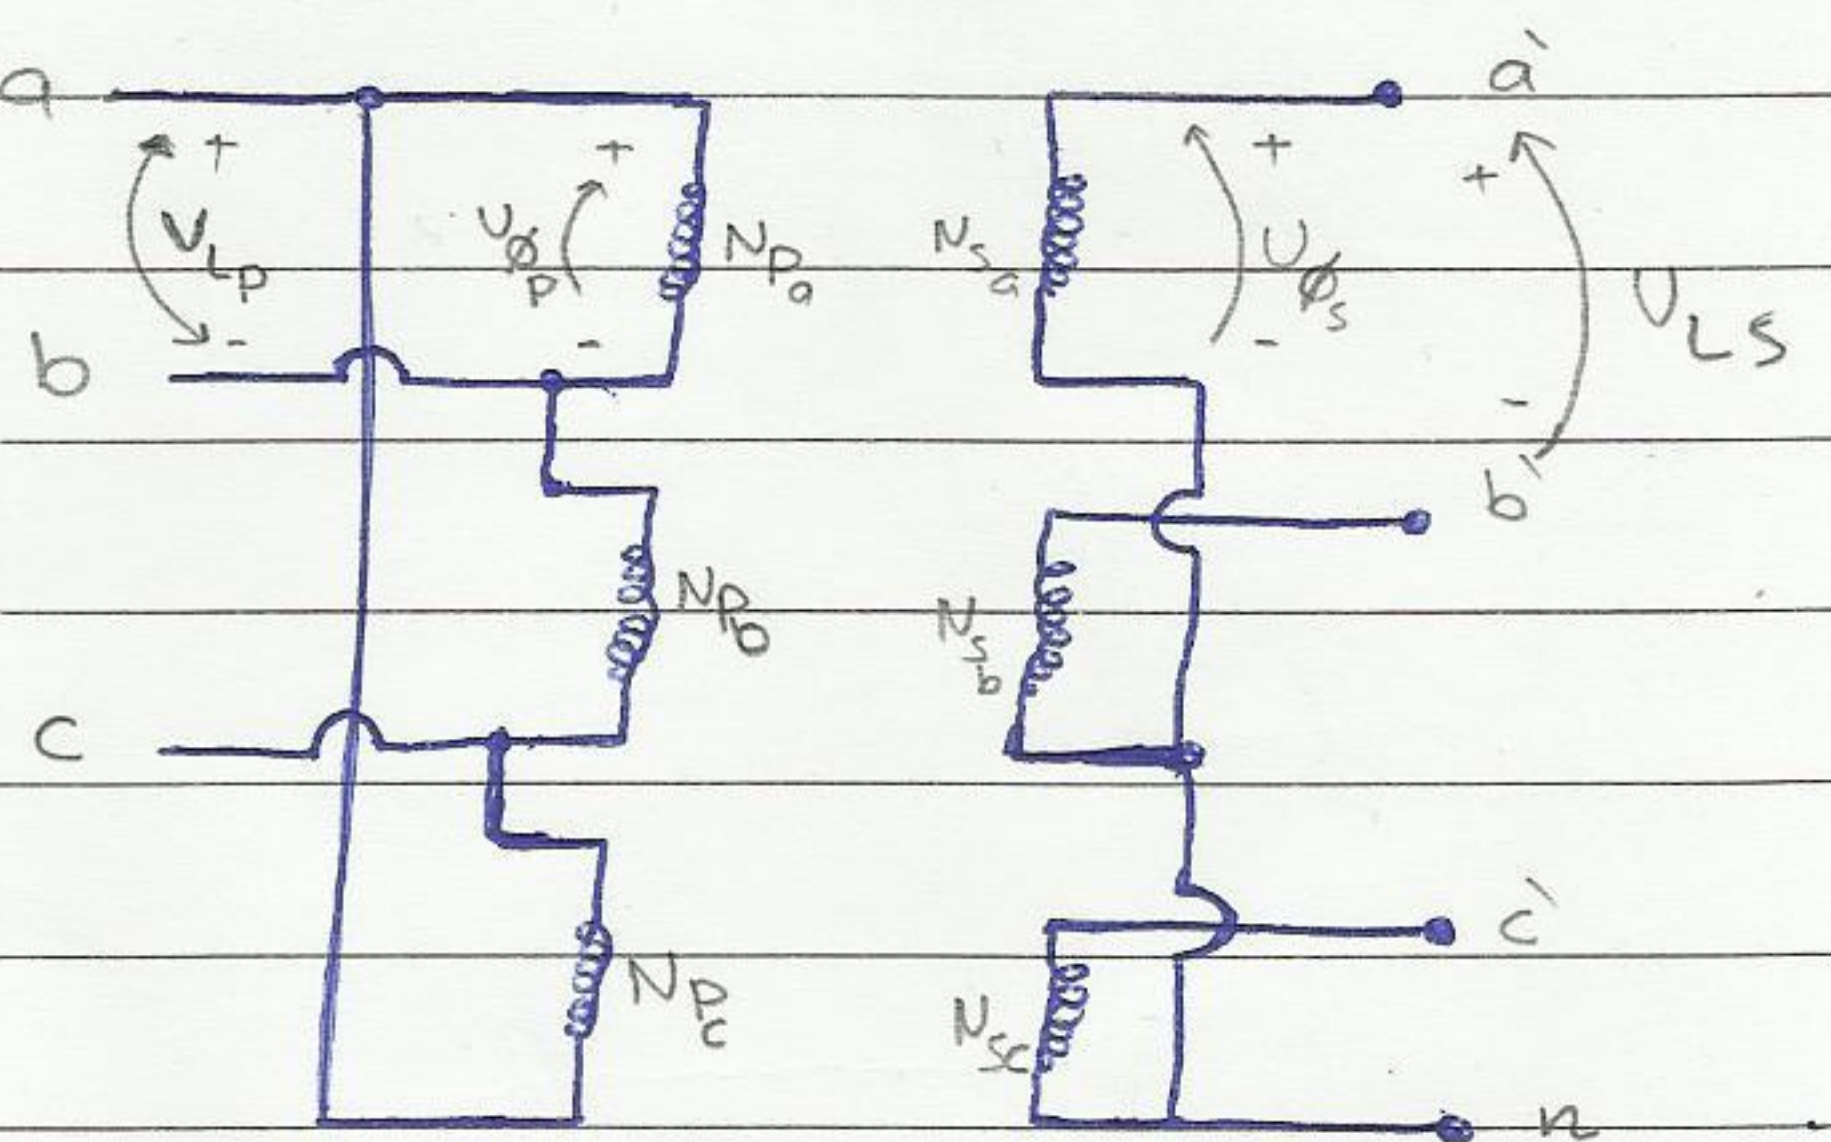 a
a'
+
+
+
+
V_LP
V_φP
N_Pa
N_Sa
V_φS
V_LS
-
-
-
-
b
b'
N_Pb
N_Sb
c
c'
N_Pc
N_Sc
n